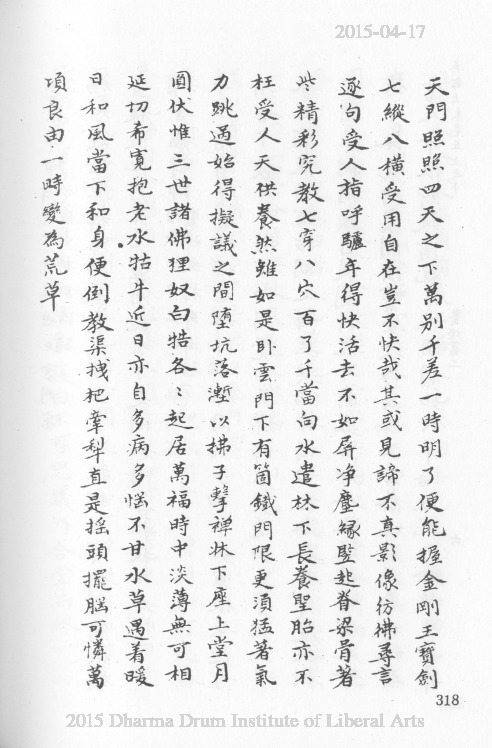 2015-04-17
天門照照四天之下萬別千差一時明了便能握金剛王寶劍
七縱八橫受用自在豈不快哉其或見諦不真影像彷彿尋言
逐句受人指呼驢年得快活去不如屏净塵緣豎起脊梁骨著
些精彩究教七穿八穴百了千當向水邊林下長養聖胎亦不
枉受人天供養然雖如是臥雲門下有箇鐵門限更須猛著氣
力跳過始得擬議之間墮坑落壍以拂子擊禪床下座上堂月
圓伏惟三世諸佛狸奴白牯各〻起居萬福時中淡薄無可相
延切希寬抱老水牯牛近日亦自多病多惱不甘水草遇着暖
日和風當下和身便倒教渠拽把牽犁直是搖頭擺腦可憐萬
頃良田一時變為荒草
318
2015 Dharma Drum Institute of Liberal Arts